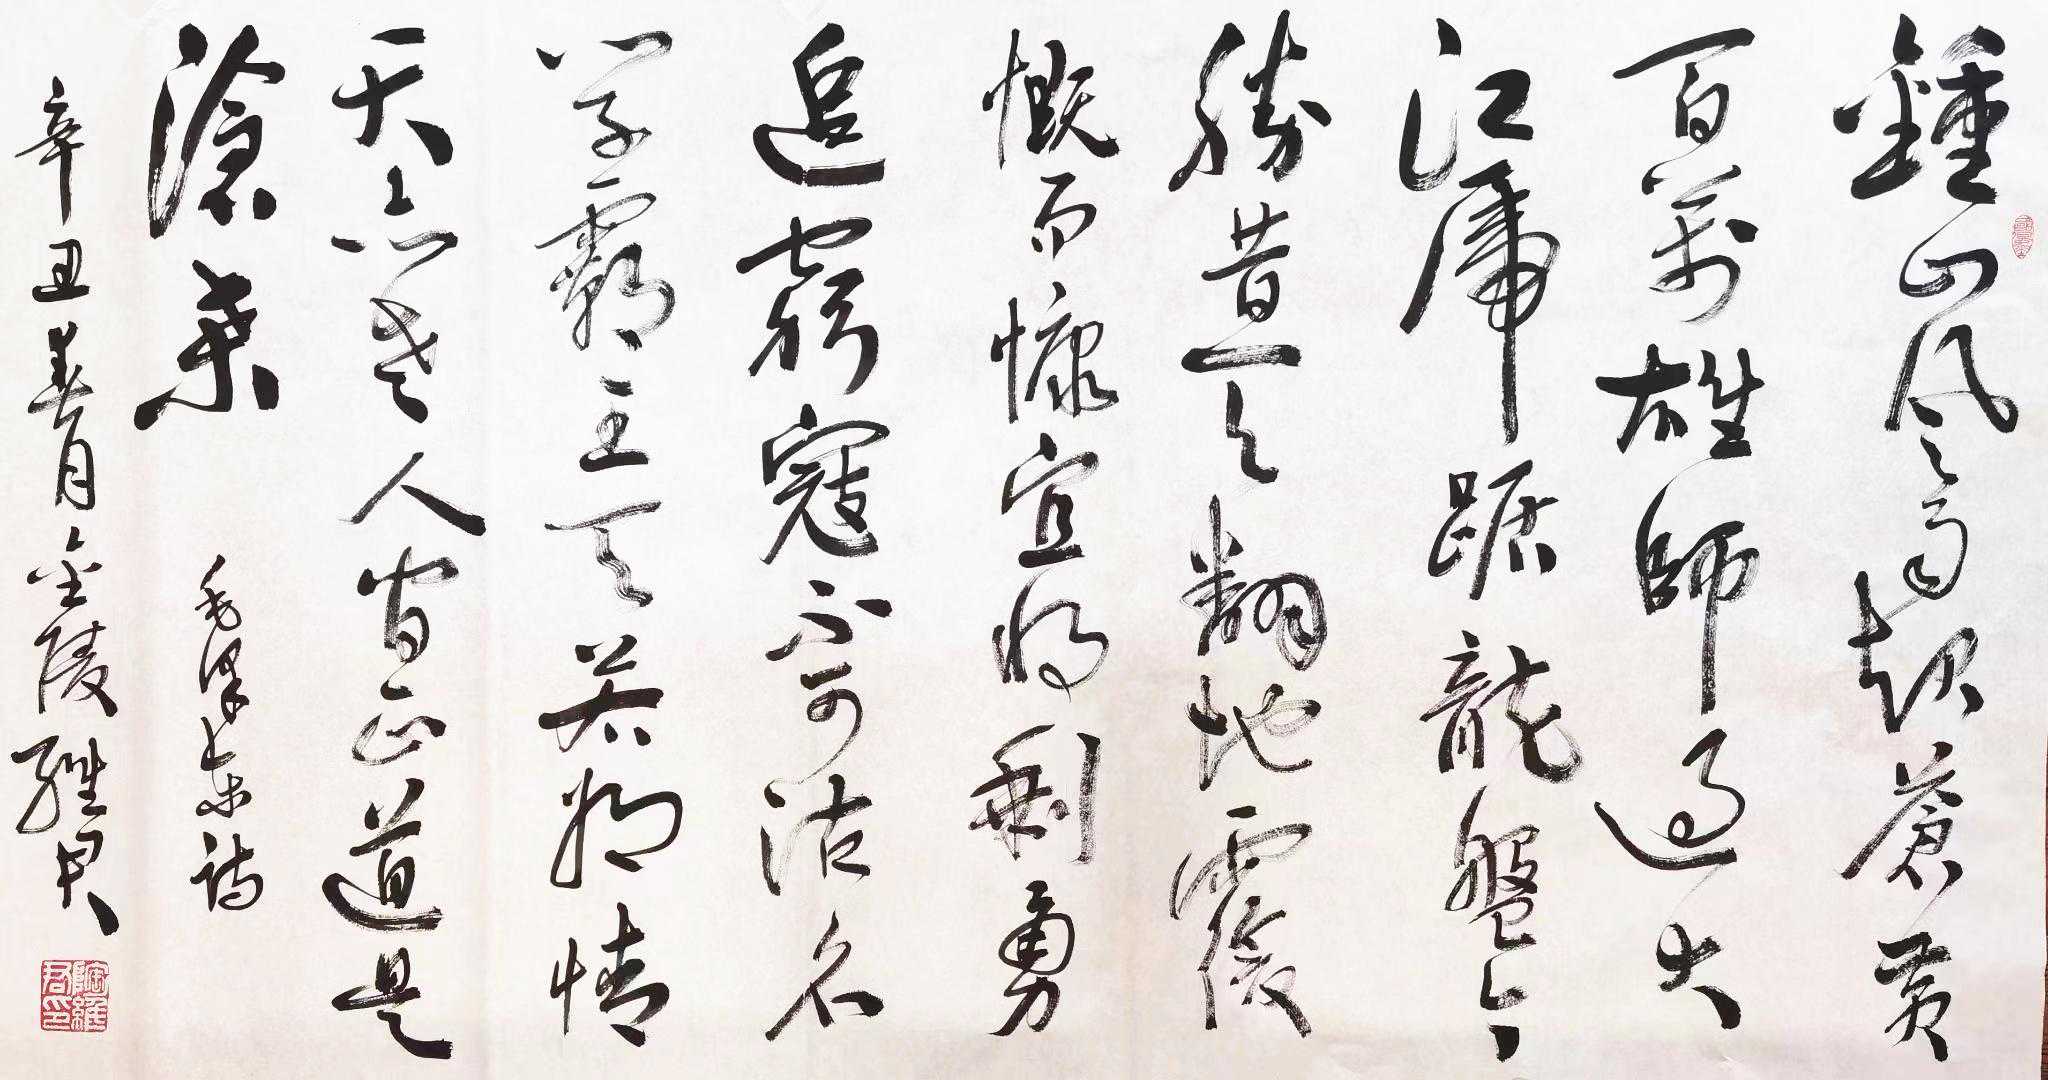 鍾山風雨起蒼黃
百萬雄師過大
江虎踞龍盤今
勝昔天翻地覆
慨而慷宜將剩勇
追窮寇不可沽名
學霸王天若有情
天亦老人間正道是
滄桑
毛澤東詩
辛丑春月金陵維君
陶維君印